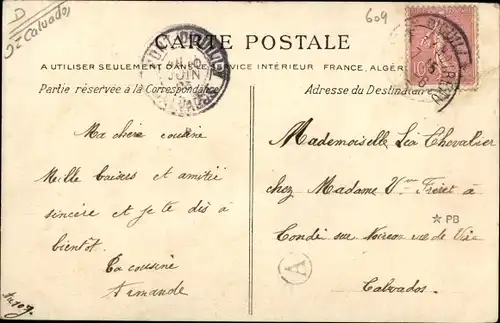 D
Calvados
609
CARTE POSTALE
A UTILISER SEULEMENT DANS LE SERVICE INTÉRIEUR FRANCE, ALGÉR
Partie réservée à la Correspondance
Adresse du Destinat
10
JUIN
10
Ma chère cousine
Mille baisers et amitié
sincère et je te dis à
bientôt.
Ta cousine
Armande
Mademoiselle Léa Chevalier
chez Madame Vve Féret à
Condé sur Noireau rue de Vire
Calvados
PB
A